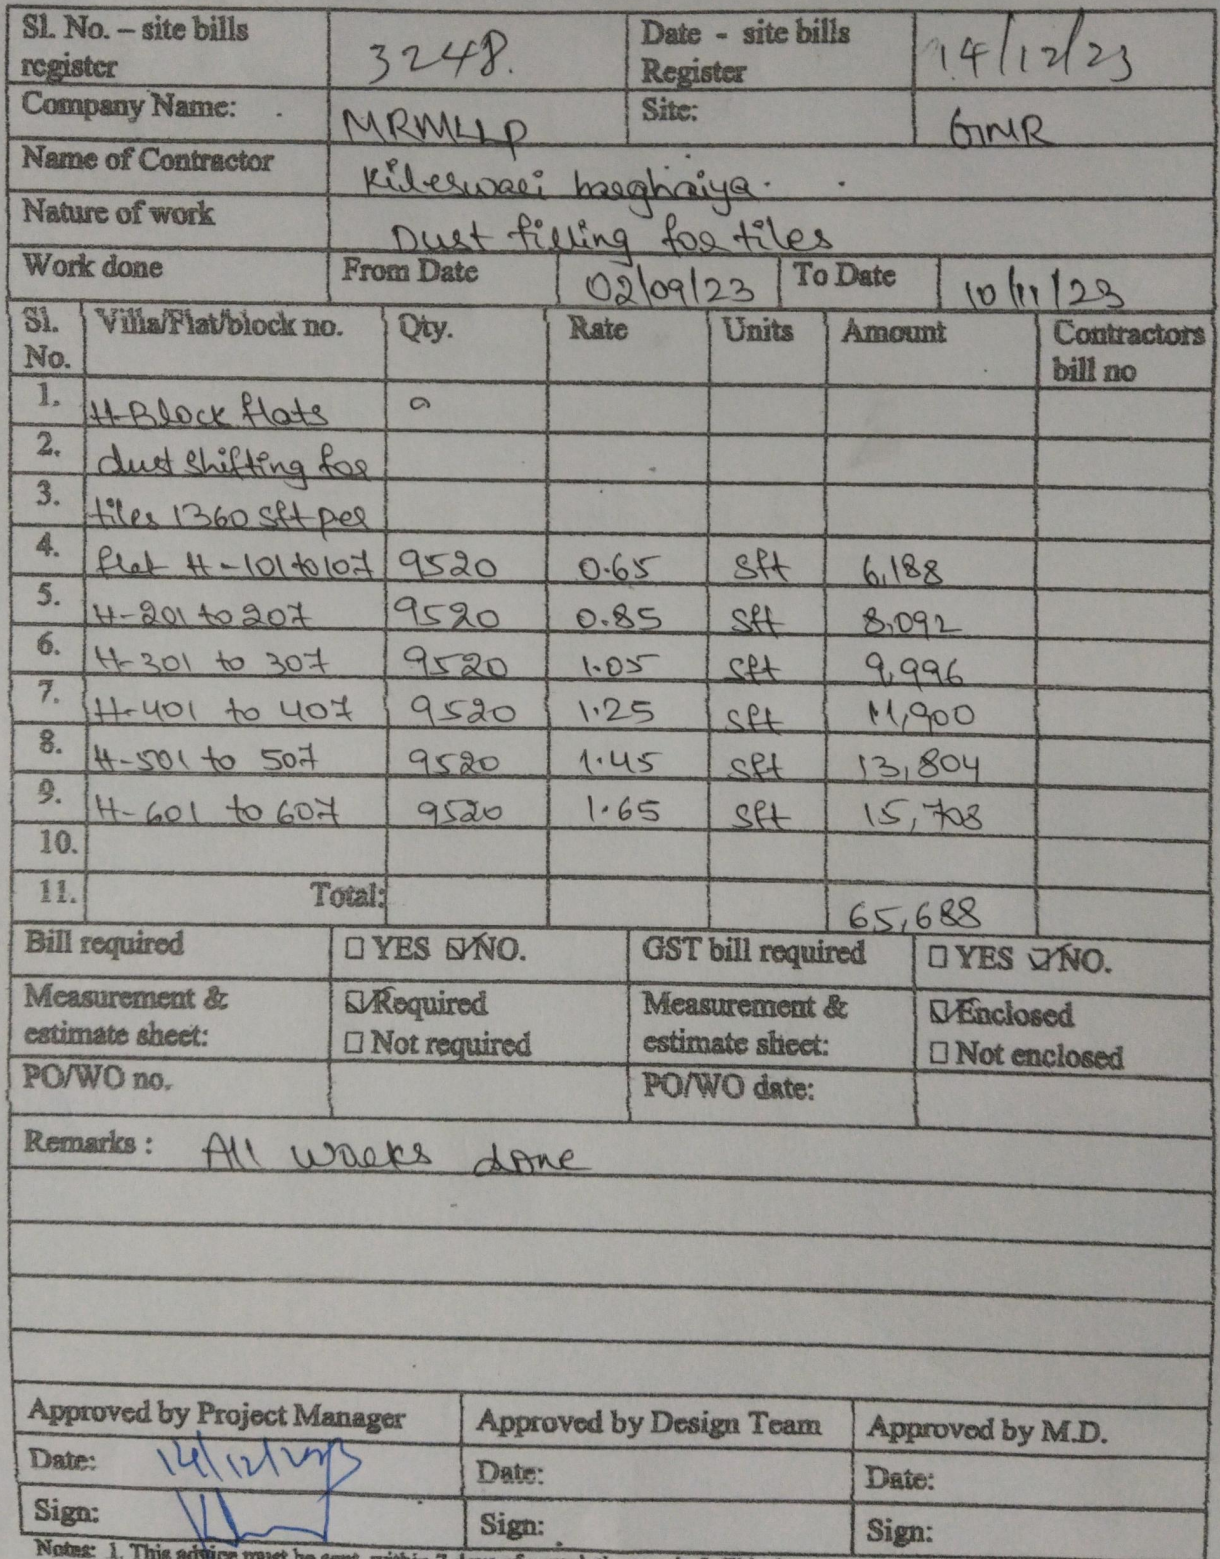 Sl. No. – site bills register 3248. Date - site bills Register 14/12/23
Company Name: MRMLLP Site: GMR
Name of Contractor Kileswari
Nature of work Dust filling for tiles
Work done From Date 02/09/23 To Date 10/11/23
Sl. No. Villa/Flat/block no. Qty. Rate Units Amount Contractors bill no
1. H-Block flats
2. dust shifting for
3. tiles 1360 sft per
4. flat H-101 to 107 9520 0.65 Sft 6,188
5. H-201 to 207 9520 0.85 Sft 8,092
6. H-301 to 307 9520 1.05 Sft 9,996
7. H-401 to 407 9520 1.25 Sft 11,900
8. H-501 to 507 9520 1.45 Sft 13,804
9. H-601 to 607 9520 1.65 Sft 15,708
10.
11. Total: 65,688
Bill required ☐ YES ☑ NO. GST bill required ☐ YES ☑ NO.
Measurement & estimate sheet: ☑ Required ☐ Not required Measurement & estimate sheet: ☑ Enclosed ☐ Not enclosed
PO/WO no. PO/WO date:
Remarks : All works done
Approved by Project Manager Approved by Design Team Approved by M.D.
Date: 14/12/2023 Date: Date:
Sign: Sign: Sign:
Notes: 1. This advice must be sent within 7 days